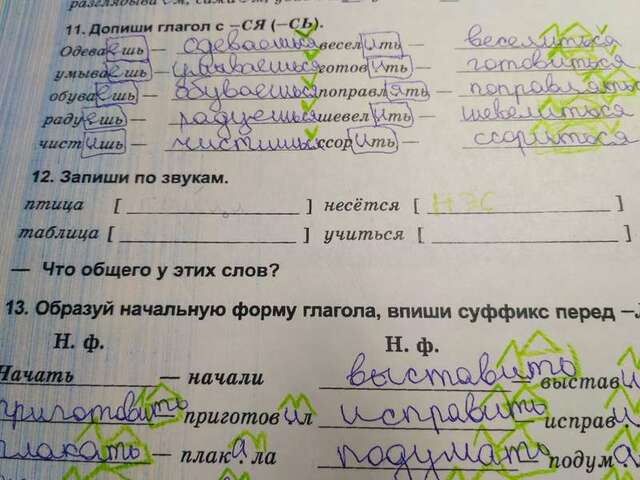 11. Допиши глагол с –СЯ (–СЬ).
Одеваешь — одеваешься веселить — веселиться
умываешь — умываешься готовить — готовиться
обуваешь — обуваешься поправлять — поправляться
радуешь — радуешься шевелить — шевелиться
чистишь — чистишься ссорить — ссориться
12. Запиши по звукам.
птица [ ] несётся [ НЭС ]
таблица [ ] учиться [ ]
— Что общего у этих слов?
13. Образуй начальную форму глагола, впиши суффикс перед –Л
Н. ф. Н. ф.
Начать — начали выставить выстави
приготовить приготовил исправить — исправи
плакать — плакала подумать — подума